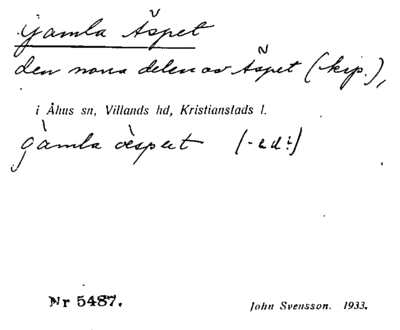 Gamla Äspet
den norra delen av Äspet (kip.),
i Åhus sn, Villands hd, Kristianstads l.
gàmla èspet (-ed:)
Nr 5487.
John Svensson. 1933.